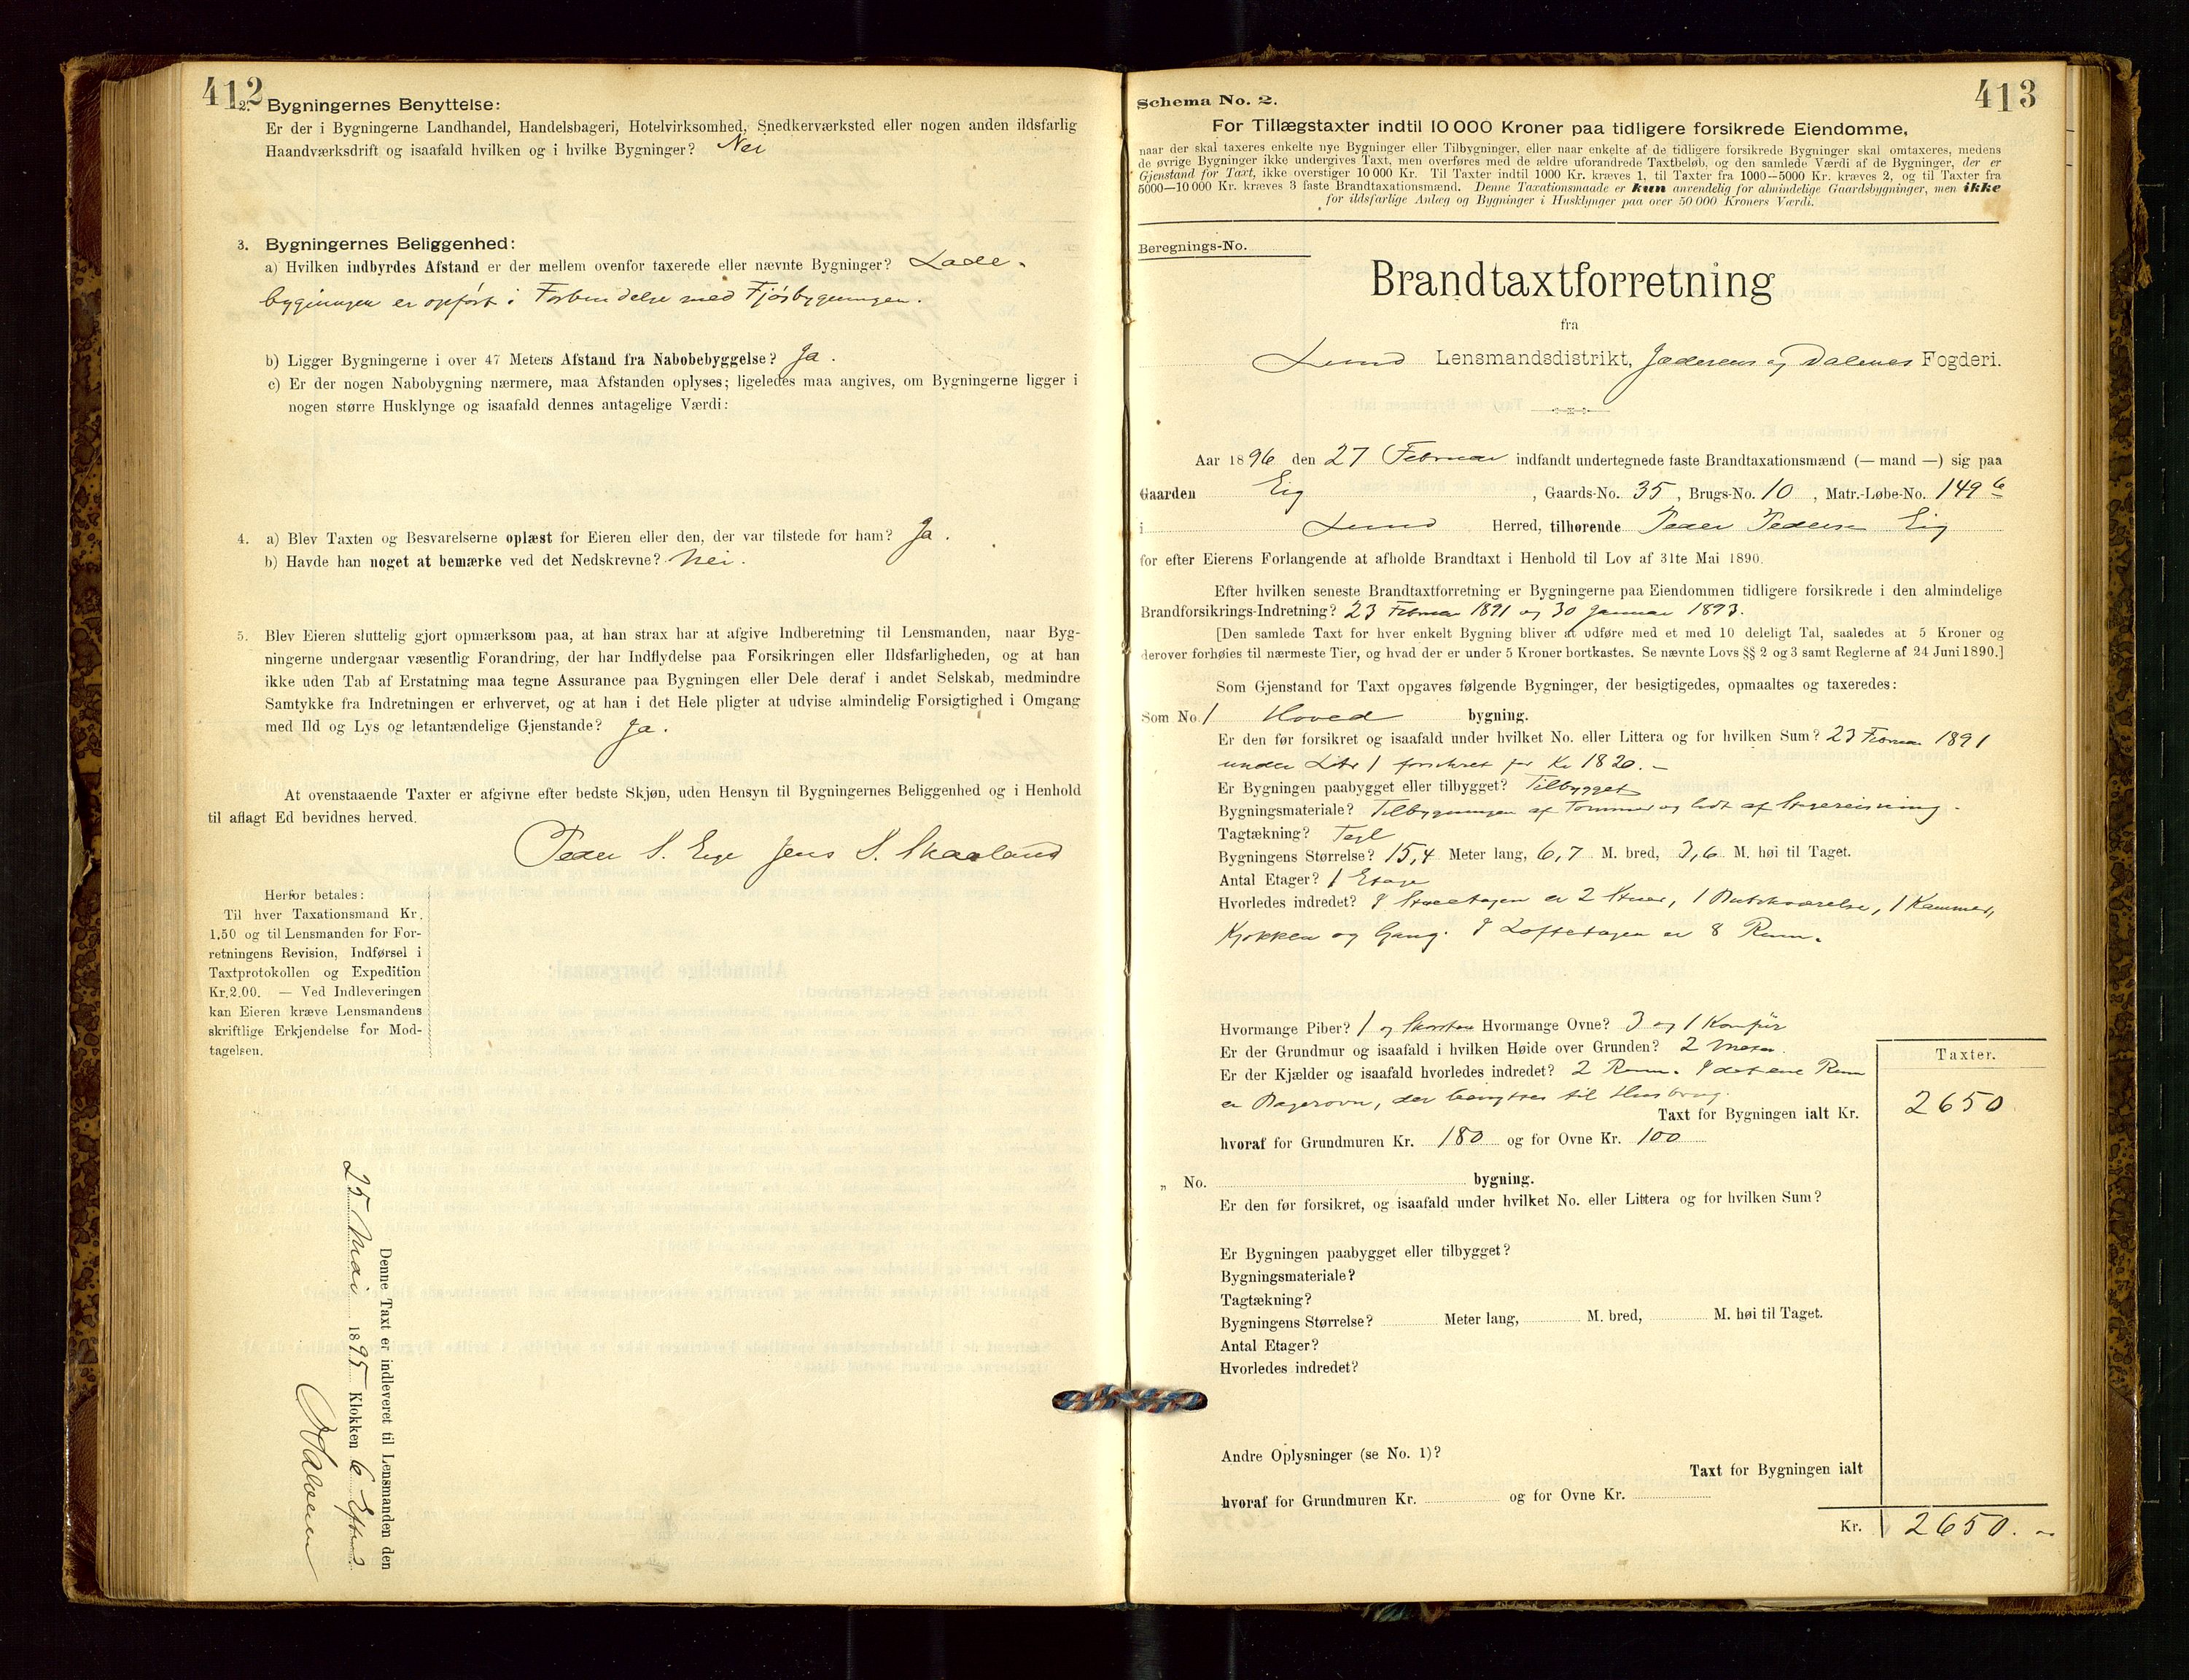 412
2. Bygningernes Benyttelse:
Er der i Bygningerne Landhandel, Handelsbageri, Hotelvirksomhed, Snedkerværksted eller nogen anden ildsfarlig
Haandværksdrift og isaafald hvilken og i hvilke Bygninger? Nei
3. Bygningernes Beliggenhed:
a) Hvilken indbyrdes Afstand er der mellem ovenfor taxerede eller nævnte Bygninger? Lade-
bygningen er opført i Forbindelse med Fjøsbygningen.
b) Ligger Bygningerne i over 47 Meters Afstand fra Nabobebyggelse? Ja.
c) Er der nogen Nabobygning nærmere, maa Afstanden oplyses; ligeledes maa angives, om Bygningerne ligger i
nogen større Husklynge og isaafald dennes antagelige Værdi:
4. a) Blev Taxten og Besvarelserne oplæst for Eieren eller den, der var tilstede for ham? Ja.
b) Havde han noget at bemærke ved det Nedskrevne? Nei.
5. Blev Eieren sluttelig gjort opmærksom paa, at han strax har at afgive Indberetning til Lensmanden, naar Byg-
ningerne undergaar væsentlig Forandring, der har Indflydelse paa Forsikringen eller Ildsfarligheden, og at han
ikke uden Tab af Erstatning maa tegne Assurance paa Bygningen eller Dele deraf i andet Selskab, medmindre
Samtykke fra Indretningen er erhvervet, og at han i det Hele pligter at udvise almindelig Forsigtighed i Omgang
med Ild og Lys og letantændelige Gjenstande? Ja.
At ovenstaaende Taxter er afgivne efter bedste Skjøn, uden Hensyn til Bygningernes Beliggenhed og i Henhold
til aflagt Ed bevidnes herved.
Peder S. Eige Jens S. Skaaland
Herfor betales:
Til hver Taxationsmand Kr.
1.50 og til Lensmanden for For-
retningens Revision, Indførsel i
Taxtprotokollen og Expedition
Kr. 2.00. — Ved Indleveringen
kan Eieren kræve Lensmandens
skriftlige Erkjendelse for Mod-
tagelsen.
Denne Taxt er indleveret til Lensmanden den
25 Mai 1895 Klokken 6 Efterm.
413
Schema No. 2.
For Tillægstaxter indtil 10 000 Kroner paa tidligere forsikrede Eiendomme,
naar der skal taxeres enkelte nye Bygninger eller Tilbygninger, eller naar enkelte af de tidligere forsikrede Bygninger skal omtaxeres, medens
de øvrige Bygninger ikke undergives Taxt, men overføres med de ældre uforandrede Taxtbeløb, og den samlede Værdi af de Bygninger, der er
Gjenstand for Taxt, ikke overstiger 10 000 Kr. Til Taxter indtil 1000 Kr. kræves 1, til Taxter fra 1000—5000 Kr. kræves 2, og til Taxter fra
5000—10 000 Kr. kræves 3 faste Brandtaxationsmænd. Denne Taxationsmaade er kun anvendelig for almindelige Gaardsbygninger, men ikke
for ildsfarlige Anlæg og Bygninger i Husklynger paa over 50 000 Kroners Værdi.
Beregnings-No.
Brandtaxtforretning
fra
Lund Lensmandsdistrikt, Jæderens og Dalenes Fogderi.
Aar 1896 den 27 Februar indfandt undertegnede faste Brandtaxationsmænd (— mand —) sig paa
Gaarden Eig, Gaards-No. 35, Brugs-No. 10, Matr.-Løbe-No. 149 b
i Lund Herred, tilhørende Peder Pedersen Eig
for efter Eierens Forlangende at afholde Brandtaxt i Henhold til Lov af 31te Mai 1890.
Efter hvilken seneste Brandtaxtforretning er Bygningerne paa Eiendommen tidligere forsikrede i den almindelige
Brandforsikrings-Indretning? 23 Februar 1891 og 30 Januar 1893.
[Den samlede Taxt for hver enkelt Bygning bliver at udføre med et med 10 deleligt Tal, saaledes at 5 Kroner og
derover forhøies til nærmeste Tier, og hvad der er under 5 Kroner bortkastes. Se nævnte Lovs §§ 2 og 3 samt Reglerne af 24 Juni 1890.]
Som Gjenstand for Taxt opgaves følgende Bygninger, der besigtigedes, opmaaltes og taxeredes:
Som No. 1 Hoved bygning.
Er den før forsikret og isaafald under hvilket No. eller Littera og for hvilken Sum? 23 Februar 1891
under Litr 1 forsikret for Kr 1820.—
Er Bygningen paabygget eller tilbygget? Tilbygget
Bygningsmateriale? Tilbygningen af Tømmer og lidt af
Tagtækning? Tegl
Bygningens Størrelse? 15,4 Meter lang, 6,7 M. bred, 3,6 M. høi til Taget.
Antal Etager? 1 Etage
Hvorledes indredet? I Stueetagen er 2 Stuer, 1 , 1 Kammer,
Kjøkken og Gang. I Loftetagen er 8 Rum.
Hvormange Piber? 1 og Skorsten Hvormange Ovne? 3 og 1 Komfür
Er der Grundmur og isaafald i hvilken Høide over Grunden? 2 Meter.
Er der Kjælder og isaafald hvorledes indredet? 2 Rum. I det ene Rum
er Bagerovn, der benyttes til Husbrug.
Taxter.
Taxt for Bygningen ialt Kr. 2650
hvoraf for Grundmuren Kr. 180 og for Ovne Kr. 100
„ No. bygning.
Er den før forsikret, og isaafald under hvilket No. eller Littera og for hvilken Sum?
Er Bygningen paabygget eller tilbygget?
Bygningsmateriale?
Tagtækning?
Bygningens Størrelse? Meter lang, M. bred, M. høi til Taget.
Antal Etager?
Hvorledes indredet?
Andre Oplysninger (se No. 1)?
Taxt for Bygningen ialt
hvoraf for Grundmuren Kr. og for Ovne Kr.
Kr. 2650.—